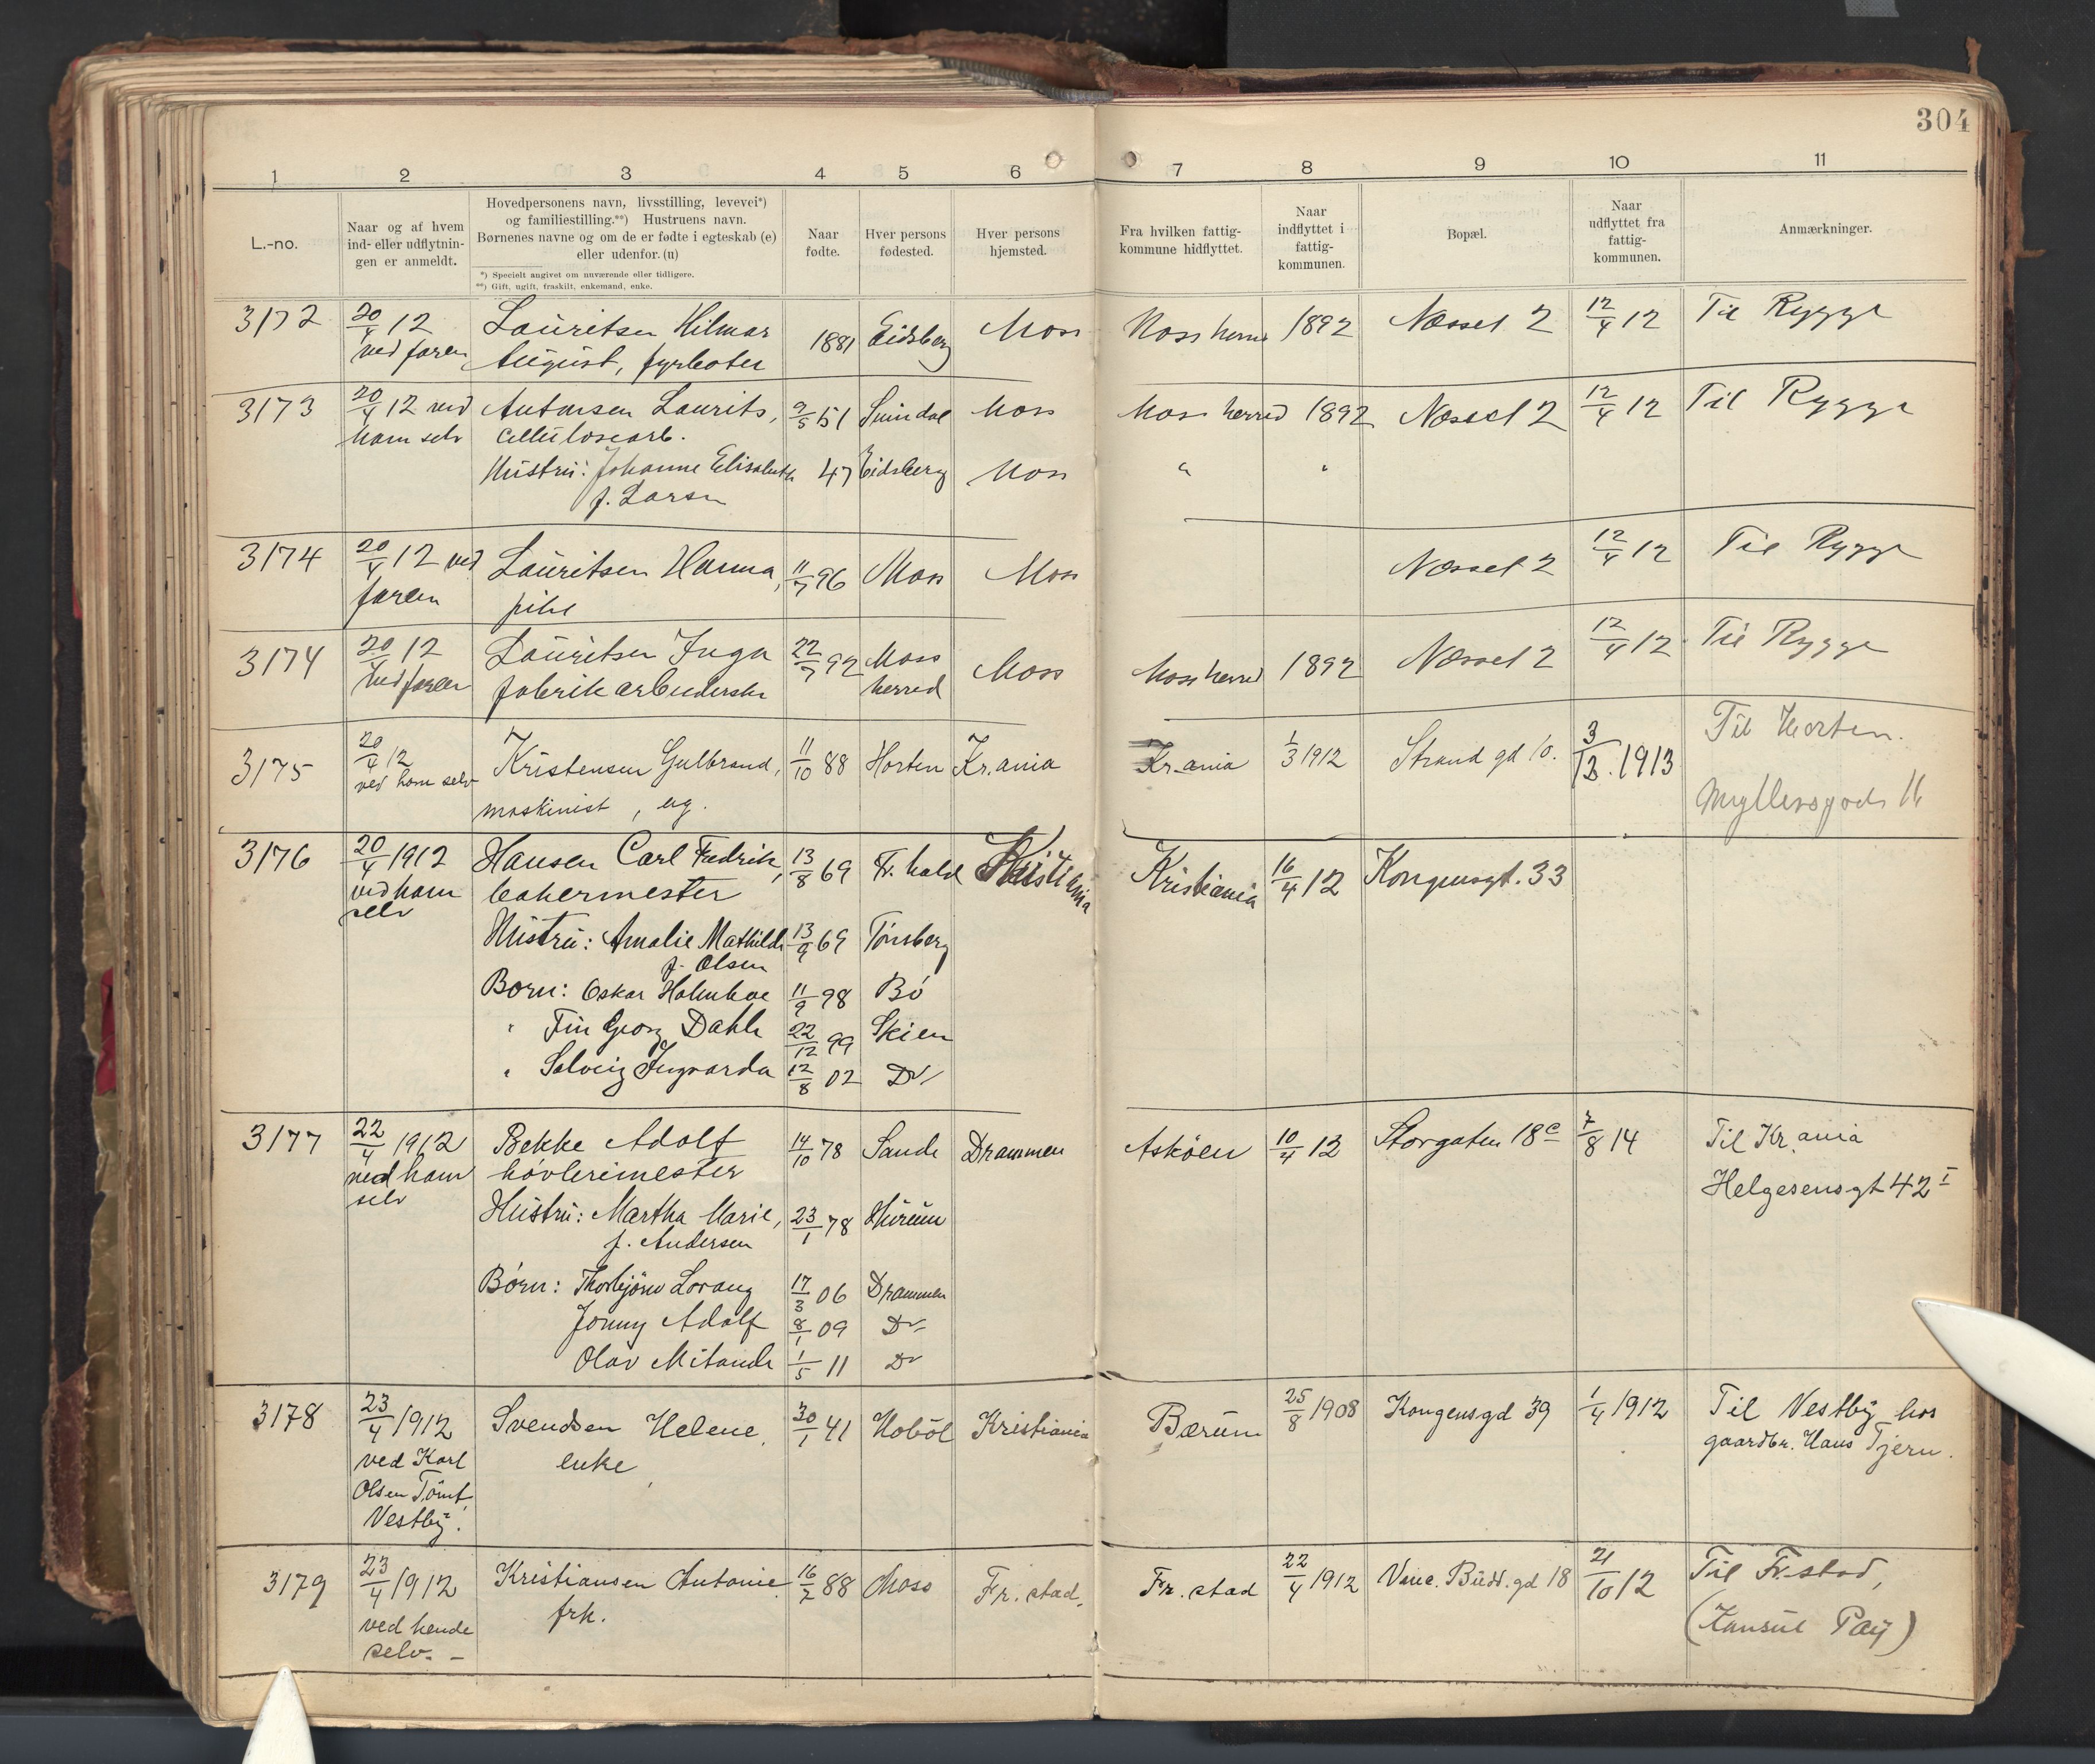 304
1 2 3 4 5 6 7 8 9 10 11
L.-no.
Naar og af hvem
ind- eller udflytnin-
gen er anmeldt.
Hovedpersonens navn, livsstilling, levevei*)
og familiestilling.**) Hustruens navn.
Børnenes navne og om de er fødte i egteskab (e)
eller udenfor. (u)
*) Specielt angivet om nuværende eller tidligere.
**) Gift, ugift, fraskilt, enkemand, enke.
Naar
fødte.
Hver persons
fødested.
Hver persons
hjemsted.
Fra hvilken fattig-
kommune hidflyttet.
Naar
indflyttet i
fattig-
kommunen.
Bopæl.
Naar
udflyttet fra
fattig-
kommunen.
Anmærkninger.
3172 20/4 12 Lauritsen Hilmar 1881 Eidsberg Moss Moss herred 1892 Næsset 2 12/4 12 Til Rygge
ved faren August, fyrbøter
3173 20/4 12 ved Antonsen Laurits, 9/5 51 Svindal Moss Moss herred 1892 Næsset 2 12/4 12 Til Rygge
ham selv cellulosearb.
Hustru: Johanne Elisabeth 47 Eidsberg Moss " "
f. Larsen
3174 20/4 12 ved Lauritsen Hanna, 11/7 96 Moss Moss Næsset 2 12/4 12 Til Rygge
faren pike
3174 20/4 12 Lauritsen Inga 22/7 92 Moss Moss Moss herred 1892 Næsset 2 12/4 12 Til Rygge
ved faren fabrikarbeiderske herred
3175 20/4 12 Kristensen Gulbrand, 11/10 88 Horten Kr.ania Kr.ania 1/3 1912 Strand gd 10. 3/12. 1913 Til Horten.
ved ham selv maskinist, ug. Myllersgade 11
3176 20/4 1912 Hansen Carl Fredrik, 13/8 69 Fr.hald Kristiania Kristiania 16/4 12 Kongensgt. 33
ved ham bakermester
selv
Hustru: Amalie Mathilde 13/9 69 Tönsberg
f. Olsen
Born: Oskar 11/9 98 Bö
" Fin Georg Dahle 22/12 99 Skien
" Solveig Ingvarda 12/8 02 Do
3177 22/4 1912 Bekke Adolf 14/10 78 Sande Drammen Asköen 10/4 12 Storgaten 18c 7/8 14 Til Kr.ania
ved ham hövlerimester Helgesensgt 42 I
selv
Hustru: Martha Marie, 23/1 78 Hurum
f. Andersen
Börn: Thorbjörn Lorang 17/3 06 Drammen
Jonny Adolf 8/1 09 Do
Olav 1/5 11 Do
3178 23/4 1912 Svendsen Helene, 30/1 41 Hoböl Kristiania Bærum 25/8 1908 Kongensgd 39 1/4 1912 Til Vestby hos
ved Karl enke gaardbr. Hans Tjern.
Olsen Tömt,
Vestby.
3179 23/4 1912 Kristiansen Antonie 16/7 88 Moss Fr.stad. Fr.stad 22/4 1912 Vinc. Budd. gd 18 21/10 12 Til Fr.stad,
ved hende frk. (Konsul Pay)
selv. -